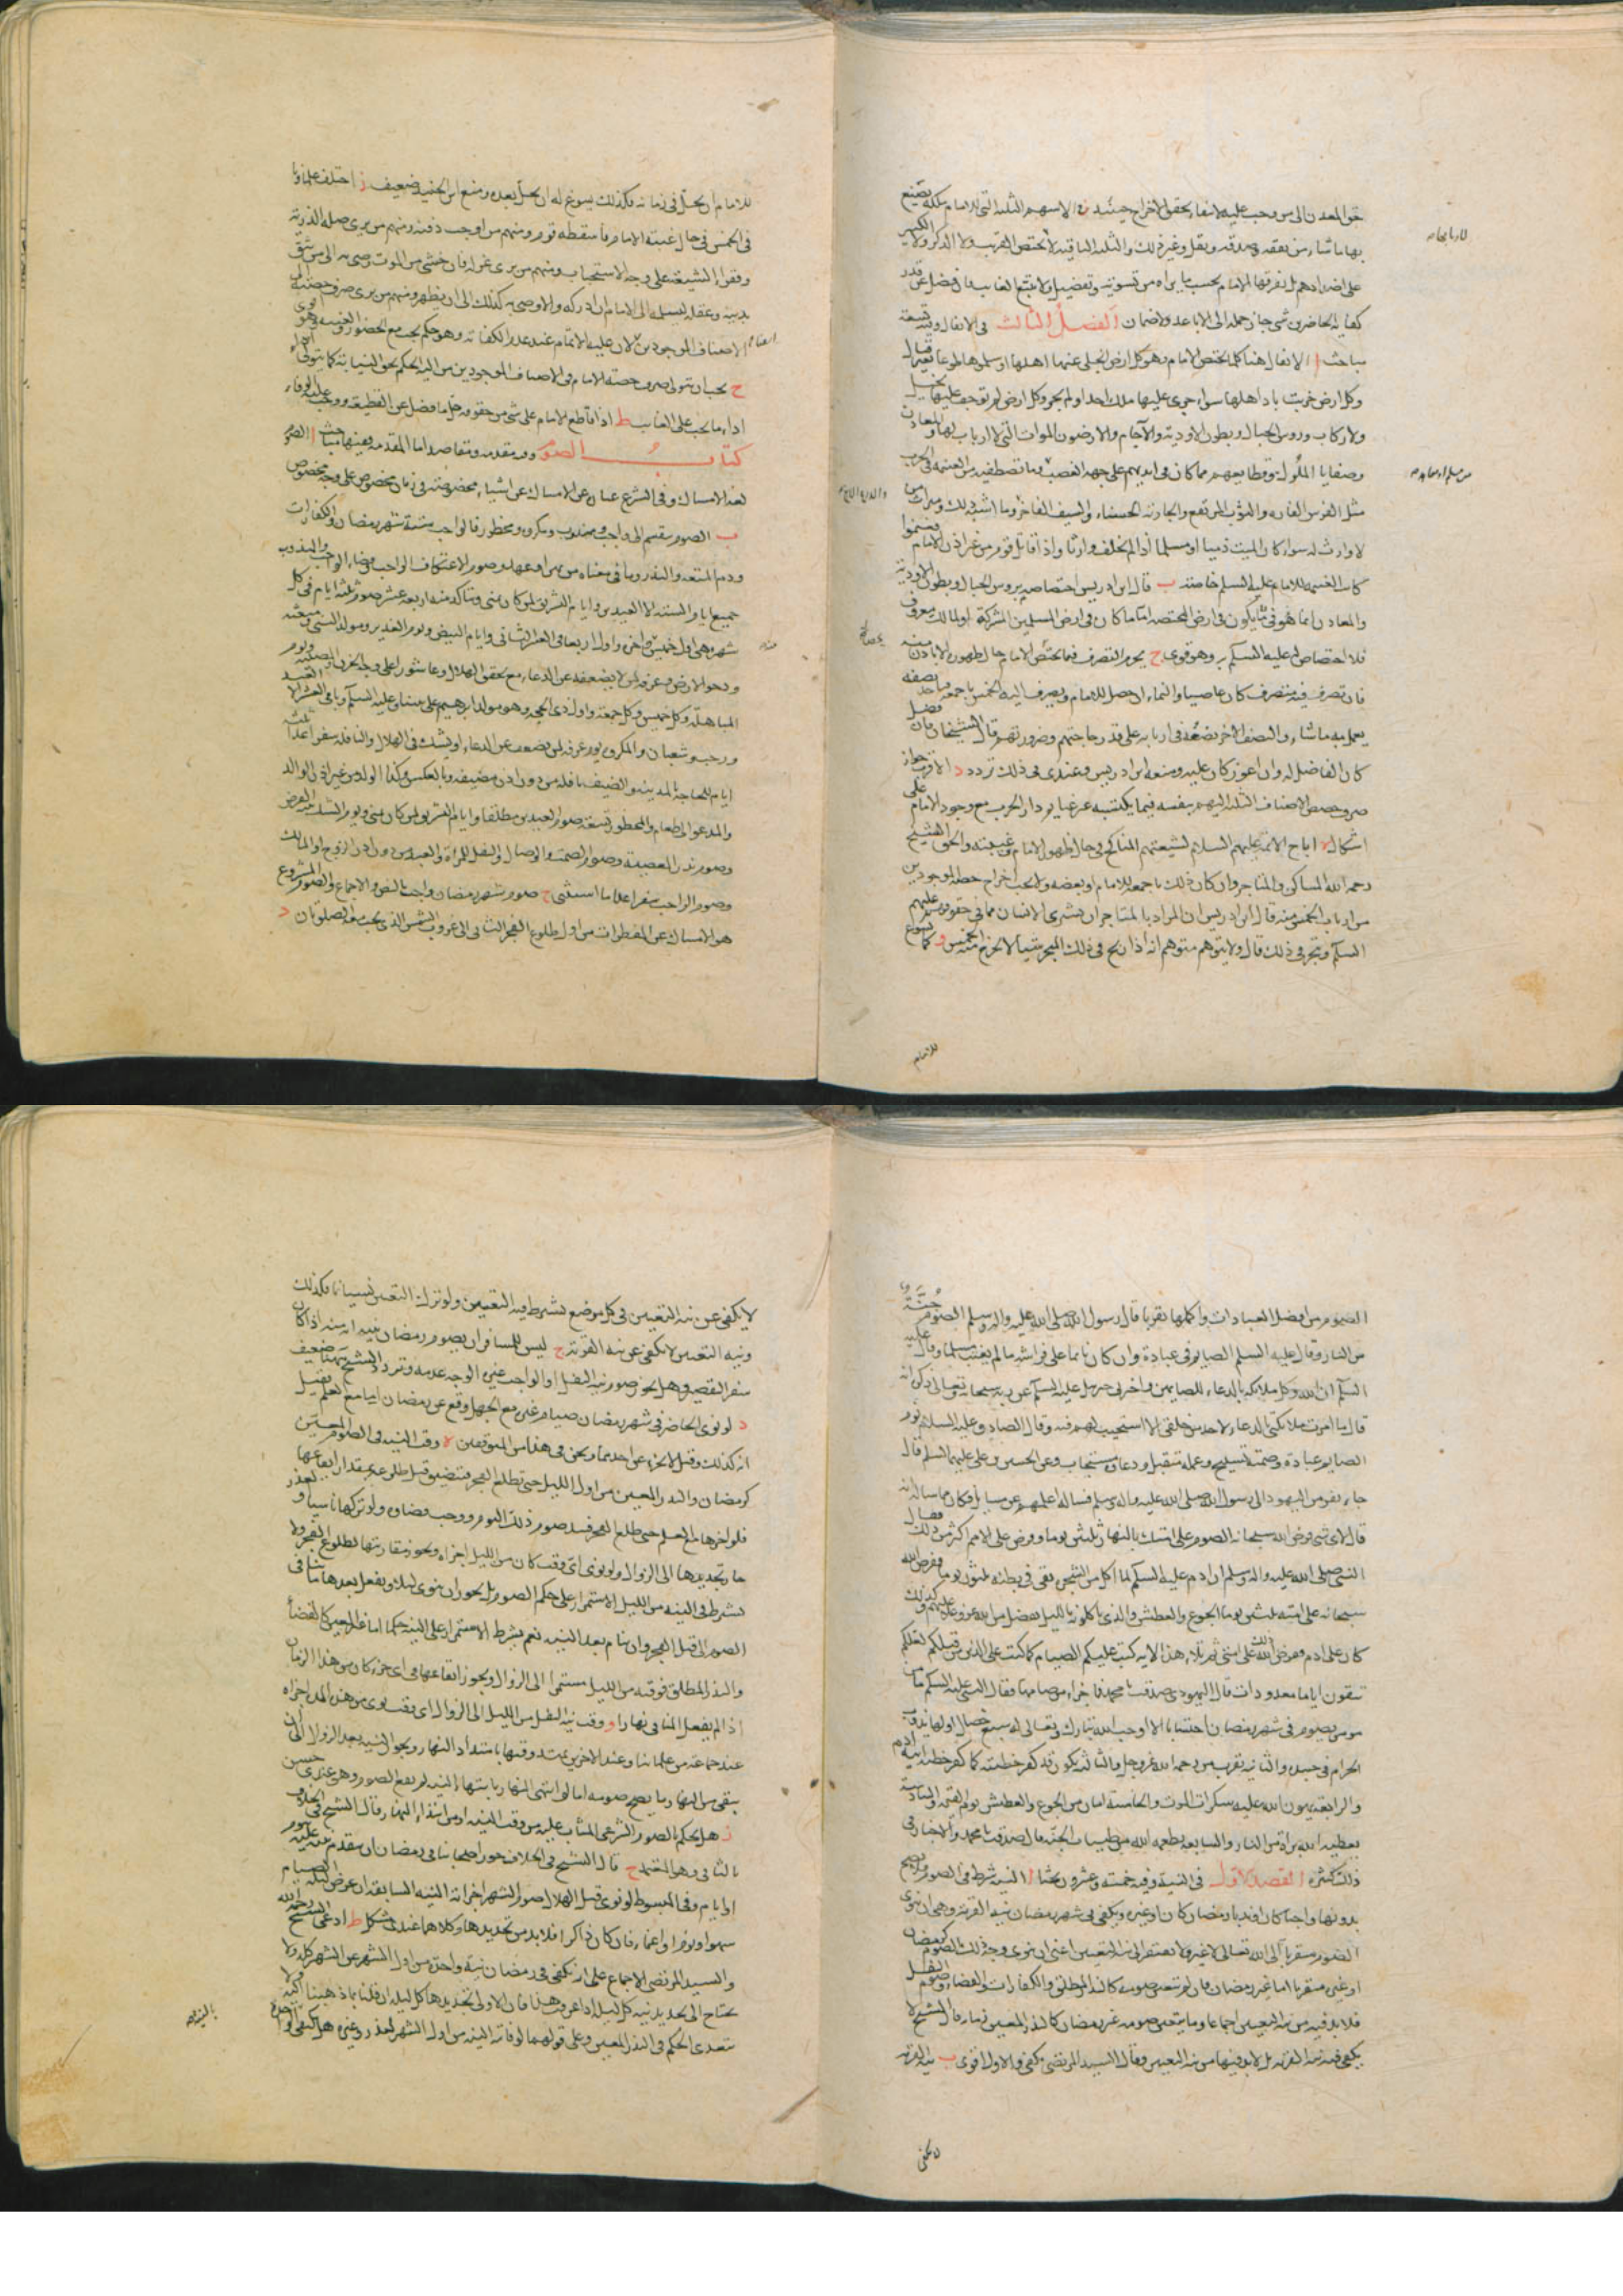 حق المعدن الى من وجب عليه لانتفاء تحقق الاخراج حينئذ الاسهم الثلثة التى للامام يملكه يصنع
بها ما شاء من نفقة وصدقة ونقل وغير ذلك والثلثة الباقية لا يختص القريب ولا الذكر ولا الكبير
على اضدادهم بل يفرقها الامام بحسب ما يراه من تسوية وتفضيل ولا يتبع الغايب فان فضل عن قدر
كفاية الحاضرين شئ جاز حمله الى الاباعد ولا ضمان الفصل الثالث فى الانفال وفيه تسعة
مباحث ا الانفال هنا كلما يختص الامام وهو كل ارض انجلى عنها اهلها او سلموها طوعا بغير قتال
وكل ارض خربت باد اهلها سواء جرى عليها ملك احد او لم يجر وكل ارض لم توجف عليها بخيل
ولا ركاب وروس الجبال وبطون الاودية والآجام والارضون الموات التى لا ارباب لها والمعادن
وصفايا الملوك وقطايعهم مما كان فى ايديهم على جهة الغصب وما تصطفيه من الغنيمة فى الحرب
مثل الفرس الفاره والثوب المرتفع والجارية الحسناء والسيف الفاخر وما اشبه ذلك وميراث من
لا وارث له سواء كان الميت ذميا او مسلما اذا لم يخلف وارثا واذا قاتل قوم من غير اذن الامام فغنموا
كانت الغنيمة للامام عليه السلم خاصة ب قال ابن ادريس اختصاصه بروس الجبال وبطون الاودية
والمعادن انما هو فى ما يكون فى ارض المختصة اما ما كان فى ارض المسلمين المشتركة او لمالك معروف
فلا اختصاص له عليه السلم به وهو قوى ج يحرم التصرف فيما يختص الامام حال ظهوره الا باذن منه
فان تصرف فيه متصرف كان عاصيا والنماء ان حصل للامام ويصرف اليه الخمس باجمعه ياخذ نصفه
يعمل به ما شاء والنصف الاخر يضعه فى اربابه على قدر حاجتهم وضرورتهم قال الشيخان فان فضل
كان الفاضل له وان اعوز كان عليه ومنعه ابن ادريس وعندى فى ذلك تردد د الاقرب جواز
صرف حصص الاصناف الثلثة اليهم بنفسه فيما يكتسبه غير غنايم دار الحرب مع وجود الامام على
اشكال ه اباح الائمة عليهم السلام لشيعتهم المناكح فى حال ظهور الامام وغيبته والحق الشيخ
رحمه الله المساكن والمتاجر وان كان ذلك باجمعه للامام او بعضه ولا يجب اخراج حصة الموجودين
من ارباب الخمس منه قال ابن ادريس ان المراد بالمتاجر ان يشترى الانسان مما فى حقوقهم عليهم
السلم ويتجر فى ذلك قال ولا يتوهم متوهم انه اذا ربح فى ذلك المتجر شيئا لا يخرج منه الخمس و كما يسوغ
للامام
للامام ان يحل فى زمانه فكذلك يسوغ له ان يحل بعده ومنع ابن الجنيد ضعيف ز اختلف علماؤنا
فى الخمس فى حال غيبة الامام فاسقطه قوم ومنهم من اوجب دفنه ومنهم من يرى صلة الذرية
وفقراء الشيعة على وجه الاستحباب ومنهم من يرى عزله فان خشى من الموت وصى به الى من يثق
بدينه وعقله ليسلمه الى الامام ان ادركه والا وصى به كذلك الى ان يظهر ومنهم من يرى صرف حصته الى
الاصناف الموجودين لان عليه الاتمام عند عدم الكفاية وهو حكم يجب مع الحضور والغيبة وهو اقوى
ح يجب ان يتولى صرف حصة الامام فى الاصناف الموجودين من اليه الحكم بحق النيابة كما يتولى
اداء ما يجب على الغايب ط اذا قاطع الامام على شئ من حقوقه حل ما فضل عن القطيعة ووجب عليه الوفاء
كتاب الصوم وفيه مقدمة ومقاصد اما المقدمة ففيها مباحث ا الصوم
لغة الامساك وفى الشرع عبارة عن الامساك عن اشياء مخصوصة فى زمان مخصوص على وجه مخصوص
ب الصوم ينقسم الى واجب ومندوب ومكروه ومحظور فالواجب ستة شهر رمضان والكفارات
ودم المتعة والنذر وما فى معناه من يمين او عهد وصوم الاعتكاف الواجب وقضاء الواجب والمندوب
جميع ايام السنة الا العيدين وايام التشريق لمن كان بمنى ويتاكد منه اربعة عشر صوم ثلثة ايام فى كل
شهر وهى اول خميس واخره واول اربعاء فى العشر الثانى وايام البيض ويوم الغدير ومولد النبى ومبعثه
ودحو الارض وعرفة لمن لا يضعفه عن الدعاء مع تحقق الهلال وعاشورا على وجه الحزن والمصيبة ويوم
المباهلة وكل خميس وكل جمعة واول ذى الحجة وهو مولد ابرهيم على نبينا وعليه السلم وباقى العشر الا العيد
ورجب وشعبان والمكروه يوم عرفة لمن يضعف عن الدعاء او يشك فى الهلال والنافلة سفرا عدا ثلثة
ايام للحاجة بالمدينة والضيف نافلة من دون اذن مضيفه وبالعكس وكذا الولد من غير اذن الوالد
والمدعو الى طعام والمحظور تسعة صوم العيدين مطلقا وايام التشريق لمن كان بمنى ويوم الشك بنية الفرض
وصوم نذر المعصية وصوم الصمت والوصال والنفل للمراة والعبد من دون اذن الزوج او المالك
وصوم الواجب سفرا عدا ما استثنى ج صوم شهر رمضان واجب بالنص والاجماع والصوم المشروع
هو الامساك عن المفطرات من اول طلوع الفجر الثانى الى غروب الشمس الذى يجب معه الصلوتان د
الصوم من افضل العبادات واكملها تقربا قال رسول الله صلى الله عليه واله وسلم الصوم جنة
من النار وقال عليه السلم الصايم فى عبادة وان كان نائما على فراشه ما لم يغتب مسلما وقال عليه
السلم ان الله وكل ملائكة بالدعاء للصايمين واخبرنى جبرئيل عليه السلم عن ربه سبحانه وتعالى ذكره انه
قال ما امرت ملائكتى بالدعاء لاحد من خلقى الا استجيب لهم فيه وقال الصادق عليه السلم نوم
الصايم عبادة وصمته تسبيح وعمله متقبل ودعاؤه مستجاب وعن الحسن بن على عليهما السلم قال
جاء نفر من اليهود الى رسول الله صلى الله عليه واله وسلم فساله اعلمهم عن مسايل فكان فيما ساله انه
قال لاى شئ فرض الله سبحانه الصوم على امتك بالنهار ثلثين يوما وفرض على الامم اكثر من ذلك فقال
النبى صلى الله عليه واله وسلم ان ادم عليه السلم لما اكل من الشجرة بقى فى بطنه ثلثون يوما ففرض الله
سبحانه على امته ثلثين يوما الجوع والعطش والذى ياكلونه بالليل تفضل من الله عز وجل عليهم وكذلك
كان على ادم ففرض الله ذلك على امتى ثم تلا هذه الاية كتب عليكم الصيام كما كتب على الذين من قبلكم لعلكم
تتقون اياما معدودات قال اليهودى صدقت يا محمد فما جزاء من صامها فقال النبى عليه السلم ما من
مومن يصوم فى شهر رمضان احتسابا الا اوجب الله تبارك وتعالى له سبع خصال اولها يذوب
الحرام فى جسده والثانية يقرب من رحمة الله عز وجل والثالثة يكون قد كفر خطيئته كما كفر خطيئة ابيه ادم
والرابعة يهون الله عليه سكرات الموت والخامسة امان من الجوع والعطش يوم القيمة والسادسة
يعطيه الله براة من النار والسابعة يطعمه الله من طيبات الجنة قال صدقت يا محمد والاخبار فى
ذلك كثيرة المقصد الاول فى النية وفيه خمسة وعشرون بحثا ا النية شرط فى الصوم ولا يصح
بدونها واجبا كان او ندبا رمضان كان او غيره ويكفى فى شهر رمضان نية القربة وهى ان ينوى
الصوم متقربا الى الله تعالى لا غير ولا يفتقر الى نية التعيين اعنى ان ينوى وجه ذلك الصوم كرمضان
او غيره متقربا اما غير رمضان فان لم يتعين صومه كالنذر المطلق والكفارات والقضاء وصوم النفل
فلا بد فيه من نية التعيين اجماعا وما يتعين صومه غير رمضان كالنذر المعين زمانه قال الشيخ لا
يكفى فيه نية القربة بل لا بد فيها من نية التعيين وقال السيد المرتضى يكفى والاول اقوى ب نية القربة
لا يكفى
لا يكفى عن نية التعيين فى كل موضع يشترط فيه التعيين ولو ترك التعيين نسيانا فكذلك
ونية التعيين لا تكفى عن نية القربة ج ليس للمسافر ان يصوم رمضان بنية انه منه اذا كان
سفر القصر وهل يجوز صوم نية النفل او الواجب غيره الوجه عدمه وتردد الشيخ هنا ضعيف
د لو نوى الحاضر فى شهر رمضان صيام غيره مع الجهل وقع عن رمضان اما مع العلم قيل
انه كذلك وقيل لا يجزى عن احدهما ونحن فى هذا من المتوقفين ه وقت النية فى الصوم المعين
كرمضان والنذر المعين من اول الليل حتى يطلع الفجر فتتضيق قبل طلوعه بمقدار ايقاعها
فلو اخرها مع العلم حتى طلع الفجر فسد صوم ذلك اليوم ووجب قضاؤه ولو تركها ناسيا او لعذر
جاز تجديدها الى الزوال ولو نوى اى وقت كان من الليل اجزاه ويجوز مقارنتها لطلوع الفجر ولا
يشترط فى النية من الليل الاستمرار على حكم الصوم بل يجوز ان ينوى ليلا ويفعل بعدها ما ينافى
الصوم الى قبل الفجر وان نام بعد النية نعم يشترط الاستمرار على النية حكما اما غير المعين كالقضاء
والنذر المطلق فوقته من الليل مستمرا الى الزوال ويجوز ايقاعها فى اى جزء كان من هذا الزمان
اذا لم يفعل المنافى نهارا و وقت نية النفل من الليل الى الزوال اى وقت نوى من هذه المدة اجزاه
عند جماعة من علمائنا وعند الاخرين يمتد وقتها بامتداد النهار ويجوز النية بعد الزوال الى ان
يبقى من النهار ما يصح صومه اما لو انتهى النهار بانتهاء النية لم يقع الصوم وهو عندى حسن
ز هل يحكم بالصوم الشرعى المثاب عليه من وقت النية او من ابتداء النهار قال الشيخ فى الخلاف
بالثانى وهو المعتمد ح قال الشيخ فى الخلاف جوز اصحابنا فى رمضان ان يتقدم نيته عليه بيوم
او ايام وفى المبسوط لو نوى قبل الهلال صوم الشهر اجزاته النية السابقة ان عرض ليلة الصيام
سهو او نوم او اغماء فان كان ذاكرا فلا بد من تجديدها وكلاهما عندى مشكل ط ادعى الشيخ رحمه الله
والسيد المرتضى الاجماع على انه تكفى فى رمضان نية واحدة من اول الشهر عن الشهر كله ولا
يحتاج الى تجديد نية كل ليلة اذا عرفت هذا فان الاولى تجديدها كل ليلة ان قلنا بما ذهبنا اليه ولا
يتعدى الحكم فى النذر المعين وعلى قولهما لو فاته النية من اول الشهر لعذر وغيره هل يكتفى